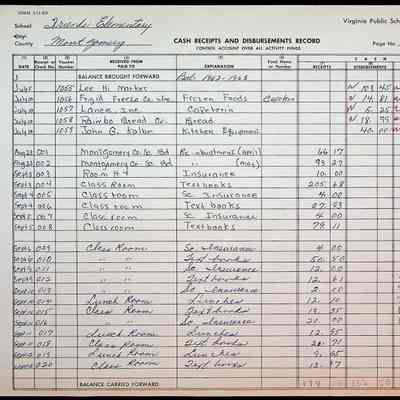 FORM 511-ED
School Friends Elementary Virginia Public Sch
City
County Montgomery CASH RECEIPTS AND DISBURSEMENTS RECORD
CONTROL ACCOUNT OVER ALL ACTIVITY FUNDS Page No.
Date Receipt or Check No. Voucher Number RECEIVED FROM PAID TO EXPLANATION Fund Name or Number RECEIPTS DISBURSEMENTS
BALANCE BROUGHT FORWARD Bal. 1962-1963
1055 Lee Hi Market
July 10 1056 Frigid Freeze Co. Frozen Foods 14 81
July 10 1057 Lance Inc Cafeteria 5 25
July 10 1058 Rainbo Bread Co. Bread
July 10 1059 John G. Kolbe Kitchen Equipment 40 00
Aug 23 001 Montgomery Co. Sc. Bd. Re-imbustment (April) 66 17
Aug 23 002 Montgomery Co. Sc. Bd. " (May) 93 27
Sept 3 003 Room #4 Insurance 10 00
Sept 4 004 Class Room Textbooks 205 68
Sept 4 005 Class room Sc. Insurance 4 00
Sept 4 006 Class room Textbooks 27 93
007 Class room Sc Insurance 4 00
Sept 5 008 Class room Textbooks 79 11
Sept 6 009 Class Room Sc. Insurance 4 00
Sept 6 010 " " Text books 50 50
011 " " Sc. Insurance 12 00
012 " " Text books 12 61
013 " " Sc. Insurance 2 00
014 Lunch Room Lunches 12 10
015 Class Room Text books
016 " " Sc. Insurance 20 00
017 Lunch Room Lunches 12 95
018 Class Room Text books 71
019 Lunch Room Lunches
020 Class Room Text books
BALANCE CARRIED FORWARD